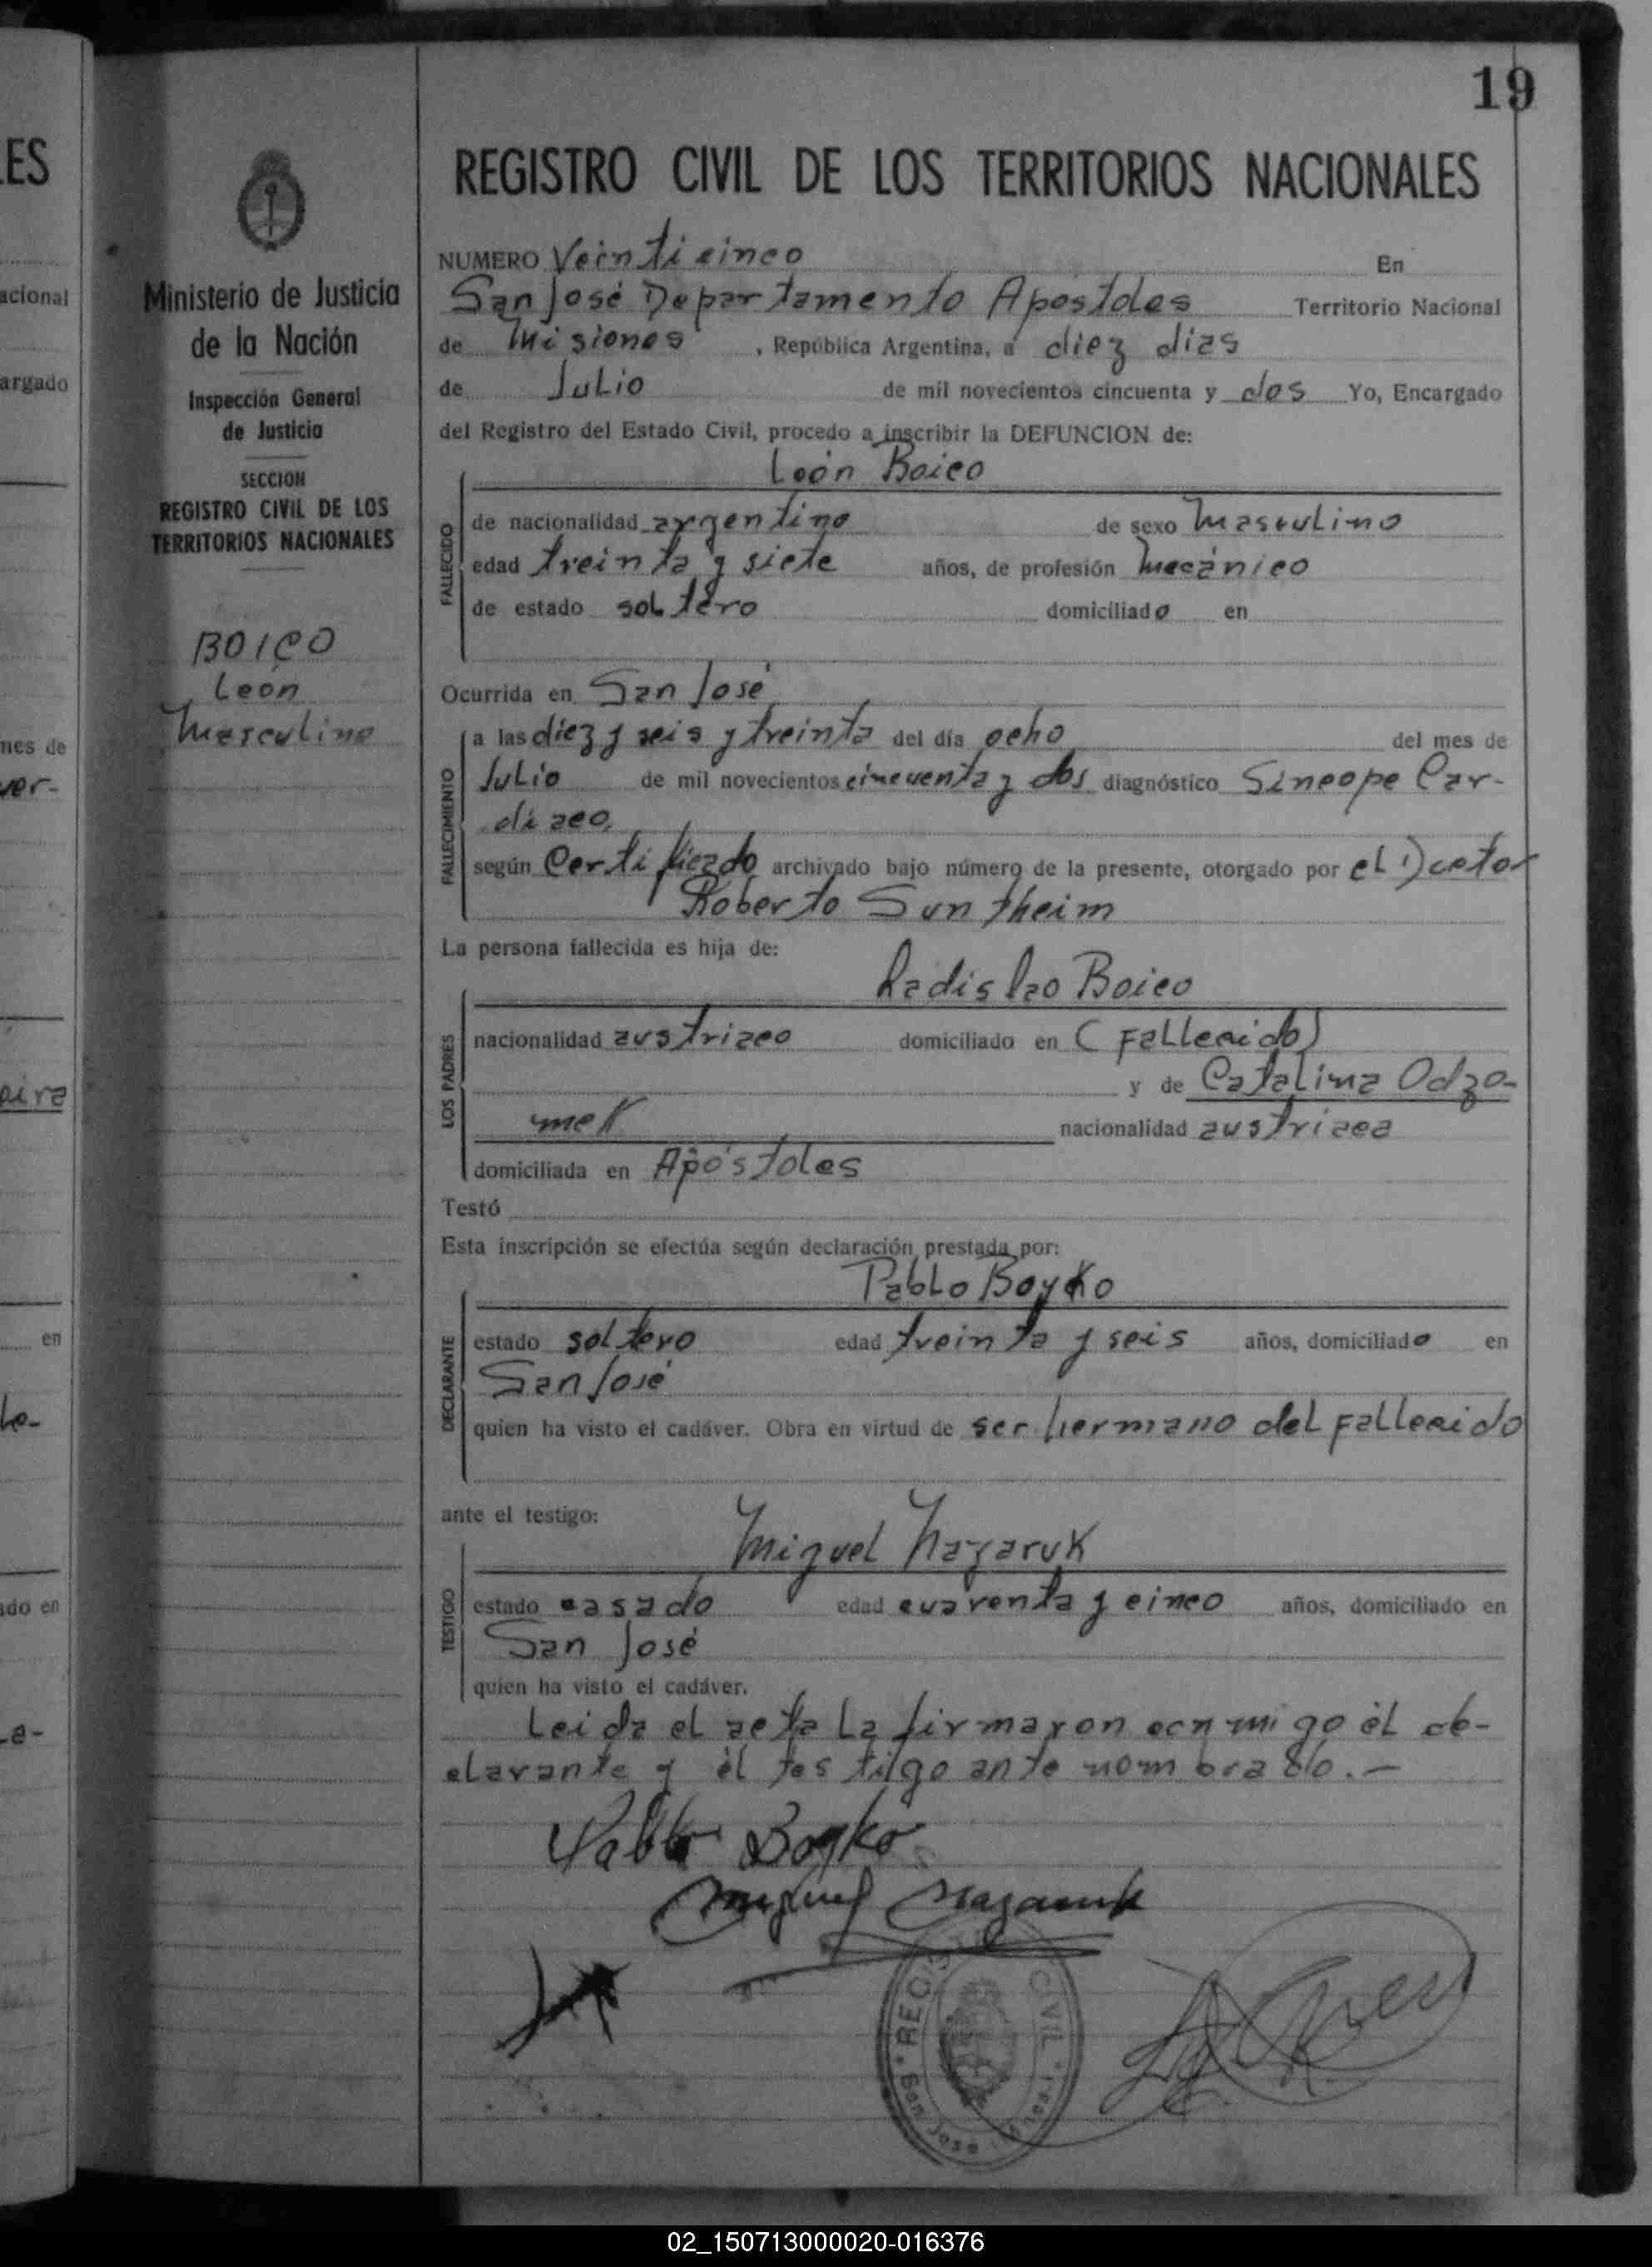 19
REGISTRO CIVIL DE LOS TERRITORIOS NACIONALES
ES
acional
argado
nes de
ver-
eira
en
le-
ado en
-a-
Ministerio de Justicia
de la Nación
Inspección General
de Justicia
SECCION
REGISTRO CIVIL DE LOS
TERRITORIOS NACIONALES
BOICO
León
Masculino
NUMERO Veinticinco En
San José Departamento Apostoles Territorio Nacional
de Misiones, República Argentina, a diez dias
de Julio de mil novecientos cincuenta y dos Yo, Encargado
del Registro del Estado Civil, procedo a inscribir la DEFUNCION de:
León Boico
FALLECIDO
de nacionalidad argentino de sexo Masculino
edad treinta y siete años, de profesión Mecánico
de estado soltero domiciliado en
Ocurrida en San José
FALLECIMIENTO
a las diez y seis y treinta del día ocho del mes de
Julio de mil novecientos cincuenta y dos diagnóstico Sincope Car-
diaco.
según Certificado archivado bajo número de la presente, otorgado por el Doctor
Roberto Suntheim
La persona fallecida es hija de:
LOS PADRES
Ladislao Boico
nacionalidad austriaco domiciliado en (Fallecido)
y de Catalina Odzo-
mek nacionalidad austriaca
domiciliada en Apóstoles
Testó
Esta inscripción se efectúa según declaración prestada por:
DECLARANTE
Pablo Boyko
estado soltero edad treinta y seis años, domiciliado en
San José
quien ha visto el cadáver. Obra en virtud de ser hermano del fallecido
ante el testigo:
TESTIGO
Miguel Nazaruk
estado casado edad cuarenta y cinco años, domiciliado en
San José
quien ha visto el cadáver.
Leida el acta la firmaron conmigo él de-
clarante y él testigo ante nombrado.—
Pablo Boyko
Miguel Nazaruk
REGISTRO CIVIL
San José
02_150713000020-016376